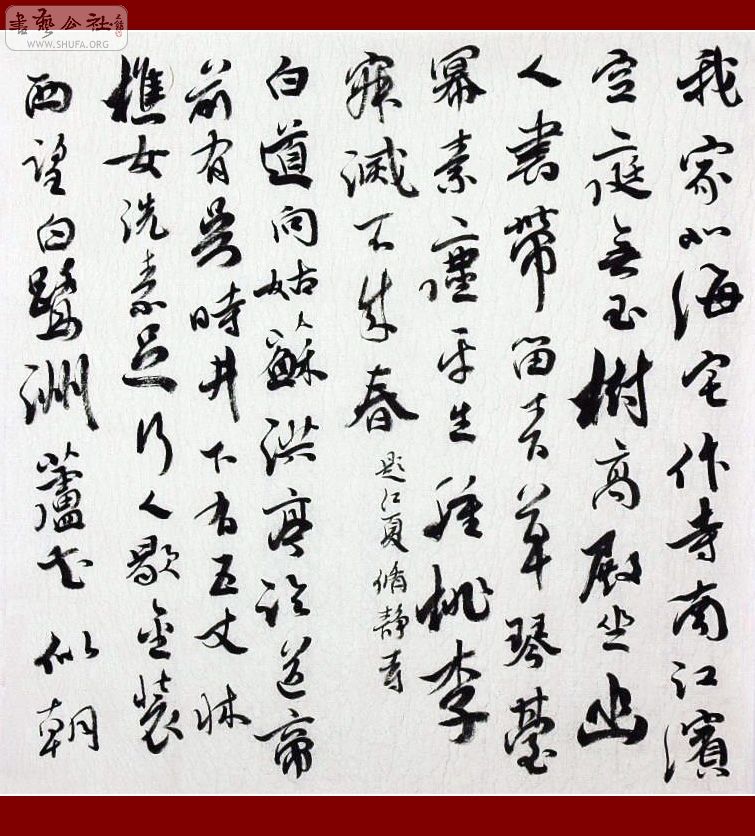 書藝公社
WWW.SHUFA.ORG
我家北海宅作寺南江濱
空庭無玉樹高殿坐幽
人書帶留青草琴臺
冪素塵平生種桃李
寂滅不成春
題江夏脩靜寺
白道向姑蘇洪亭臨道旁
前有吳時井下有五丈牀
樵女洗素足行人歇金裝
西望白鷺洲蘆花似朝